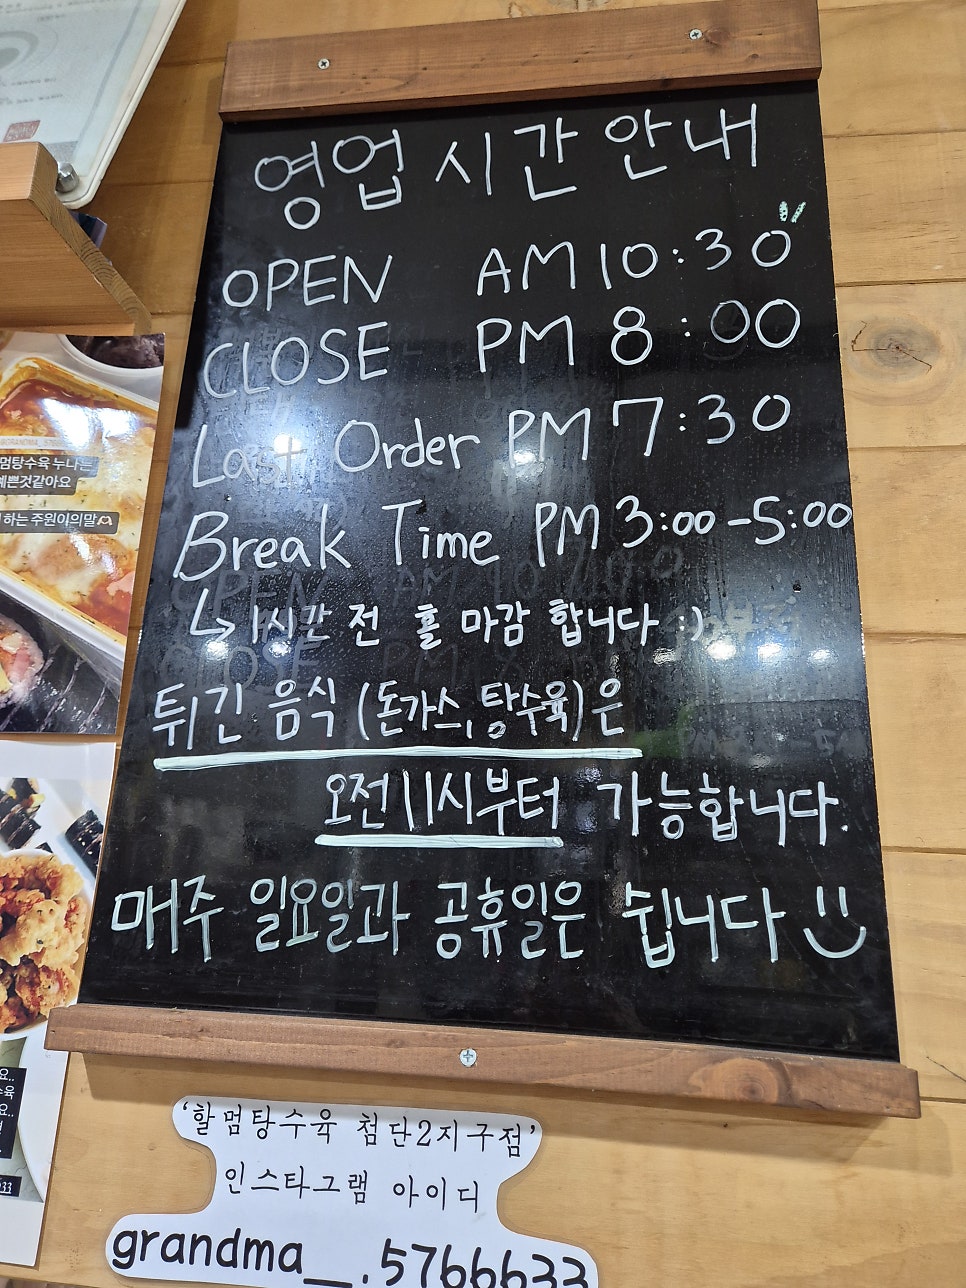 영업시간안내
OPEN AM 10:30
CLOSE PM 8:00
Last Order PM 7:30
Break Time PM 3:00-5:00
↳ 1시간 전 홀 마감 합니다 :)
튀긴 음식 (돈가스, 탕수육)은
오전 11시부터 가능합니다.
매주 일요일과 공휴일은 쉽니다
'할멈탕수육 첨단2지구점'
인스타그램 아이디
grandma__.5766633
멈탕수육 누나는
예쁜것같아요
하는 주원이의말